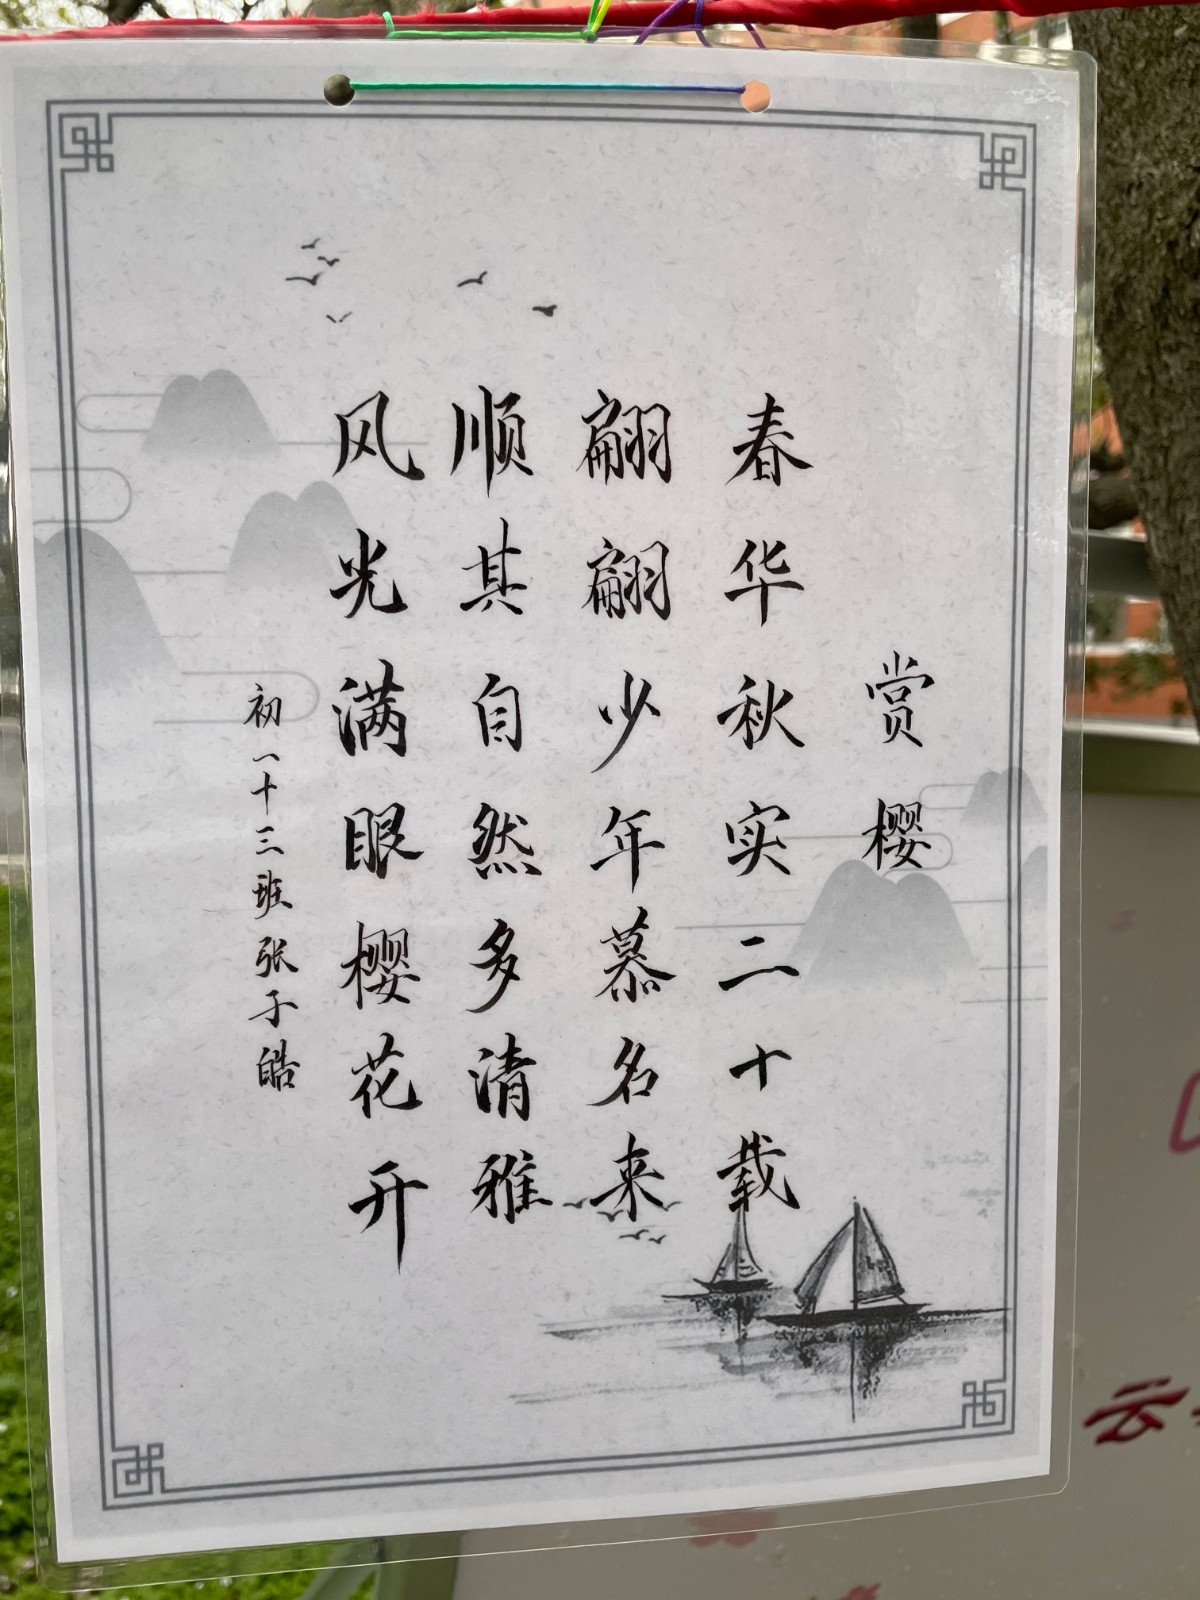 赏樱
春华秋实二十载
翩翩少年慕名来
顺其自然多清雅
风光满眼樱花开
初一十三班张子皓
云